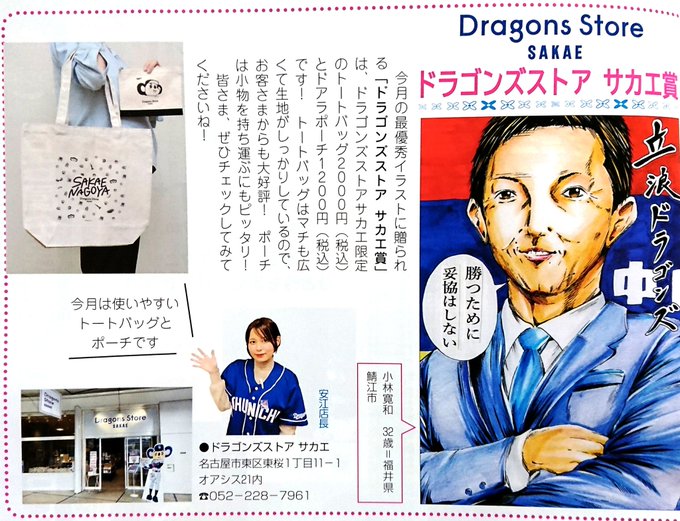 Dragons Store
SAKAE
ドラゴンズストア サカエ賞
今月の最優秀イラストに贈られ
る「ドラゴンズストア サカエ賞」
は、ドラゴンズストアサカエ限定
のトートバッグ2000円（税込）
とドアラポーチ1200円（税込）
です！ トートバッグはマチも広
くて生地がしっかりしているので、
お客さまからも大好評！ ポーチ
は小物を持ち運ぶにもピッタリ！
皆さま、ぜひチェックしてみて
くださいね！
SAKAE
NAGOYA
立浪ドラゴンズ
勝つために
妥協はしない
中
小林寛和 32歳＝福井県
鯖江市
今月は使いやすい
トートバッグと
ポーチです
CHUNICHI
安江店長
Dragons Store
SAKAE
●ドラゴンズストア サカエ
名古屋市東区東桜1丁目11−1
オアシス21内
☎052−228−7961